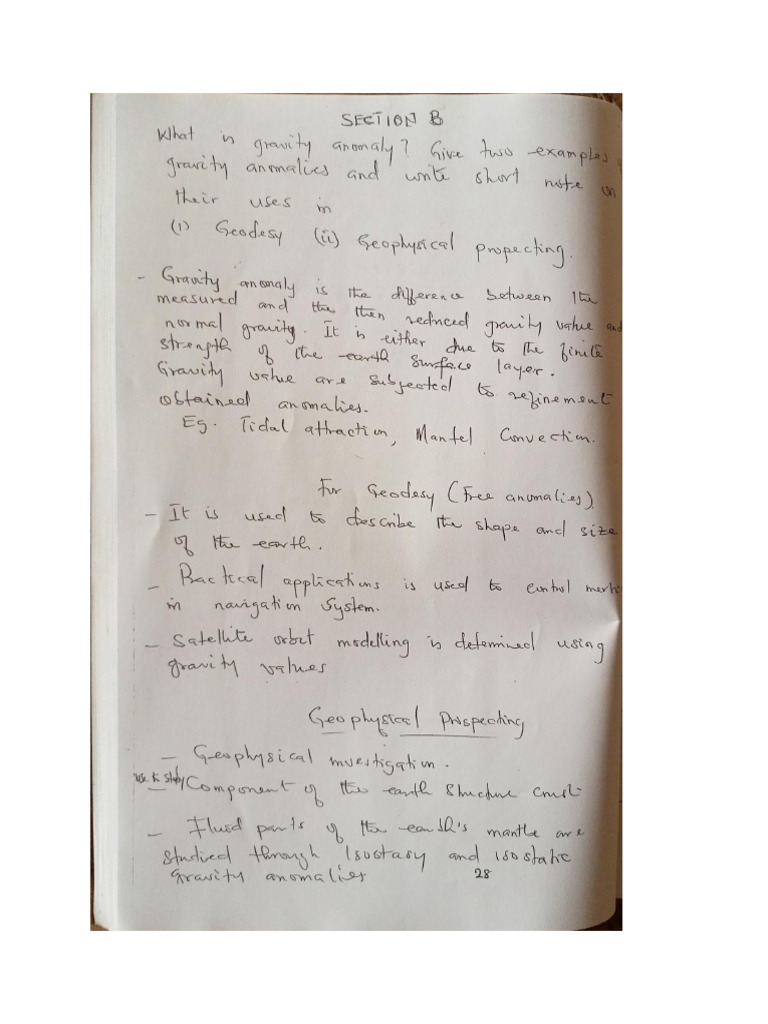 SECTION B
What is gravity anomaly? Give two examples
gravity anomalies and write short note on
their uses in
(i) Geodesy (ii) Geophysical propecting.
- Gravity anomaly is the difference between the
measured and the then reduced gravity value and
normal gravity. It is either due to the finite
strength of the earth surface layer.
Gravity value are subjected to refinement
obtained anomalies.
Eg. Tidal attraction, Mantel Convection.
For Geodesy (Free anomalies)
- It is used to describe the shape and size
of the earth.
- Practical applications is used to control
in navigation system.
- Satellite orbit modelling is determined using
gravity values
Geophysical Prospecting
- Geophysical investigation.
- Component of the earth structure crust
- Fluid parts of the earth's mantle are
studied through Isostasy and isostatic
gravity anomalies
28